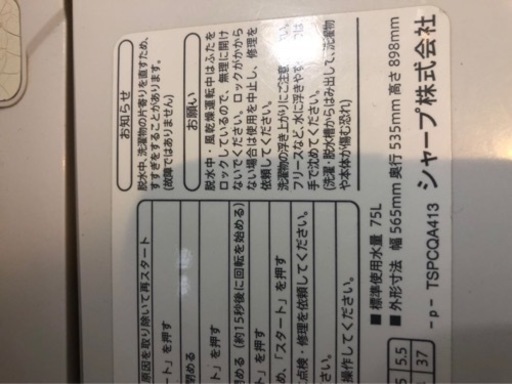 お知らせ
脱水中、洗濯物の片寄りを直すため、
すすぎをすることがあります。
(故障ではありません)
お願い
脱水中・風乾燥運転中はふたを
ロックしているので、無理に開け
ないでください。ロックがかから
ない場合は使用を中止し、修理を
依頼してください。
洗濯物の浮き上がりにご注意
フリースなど、水に浮きやす
手で沈めてください。
(洗濯・脱水槽からはみ出して、洗濯物
や本体が傷む恐れ)
原因を取り除いて再スタート
ート」を押す
閉める
」を押す
閉める (約15秒後に回転を始める)
ート」を押す
め、「スタート」を押す
点検・修理を依頼してください。
ださい。
操作してください。
■ 標準使用水量 75L
■ 外形寸法 幅 565mm 奥行 535mm 高さ 898mm
-p- TSPCQA413 シャープ株式会社
5.5
37